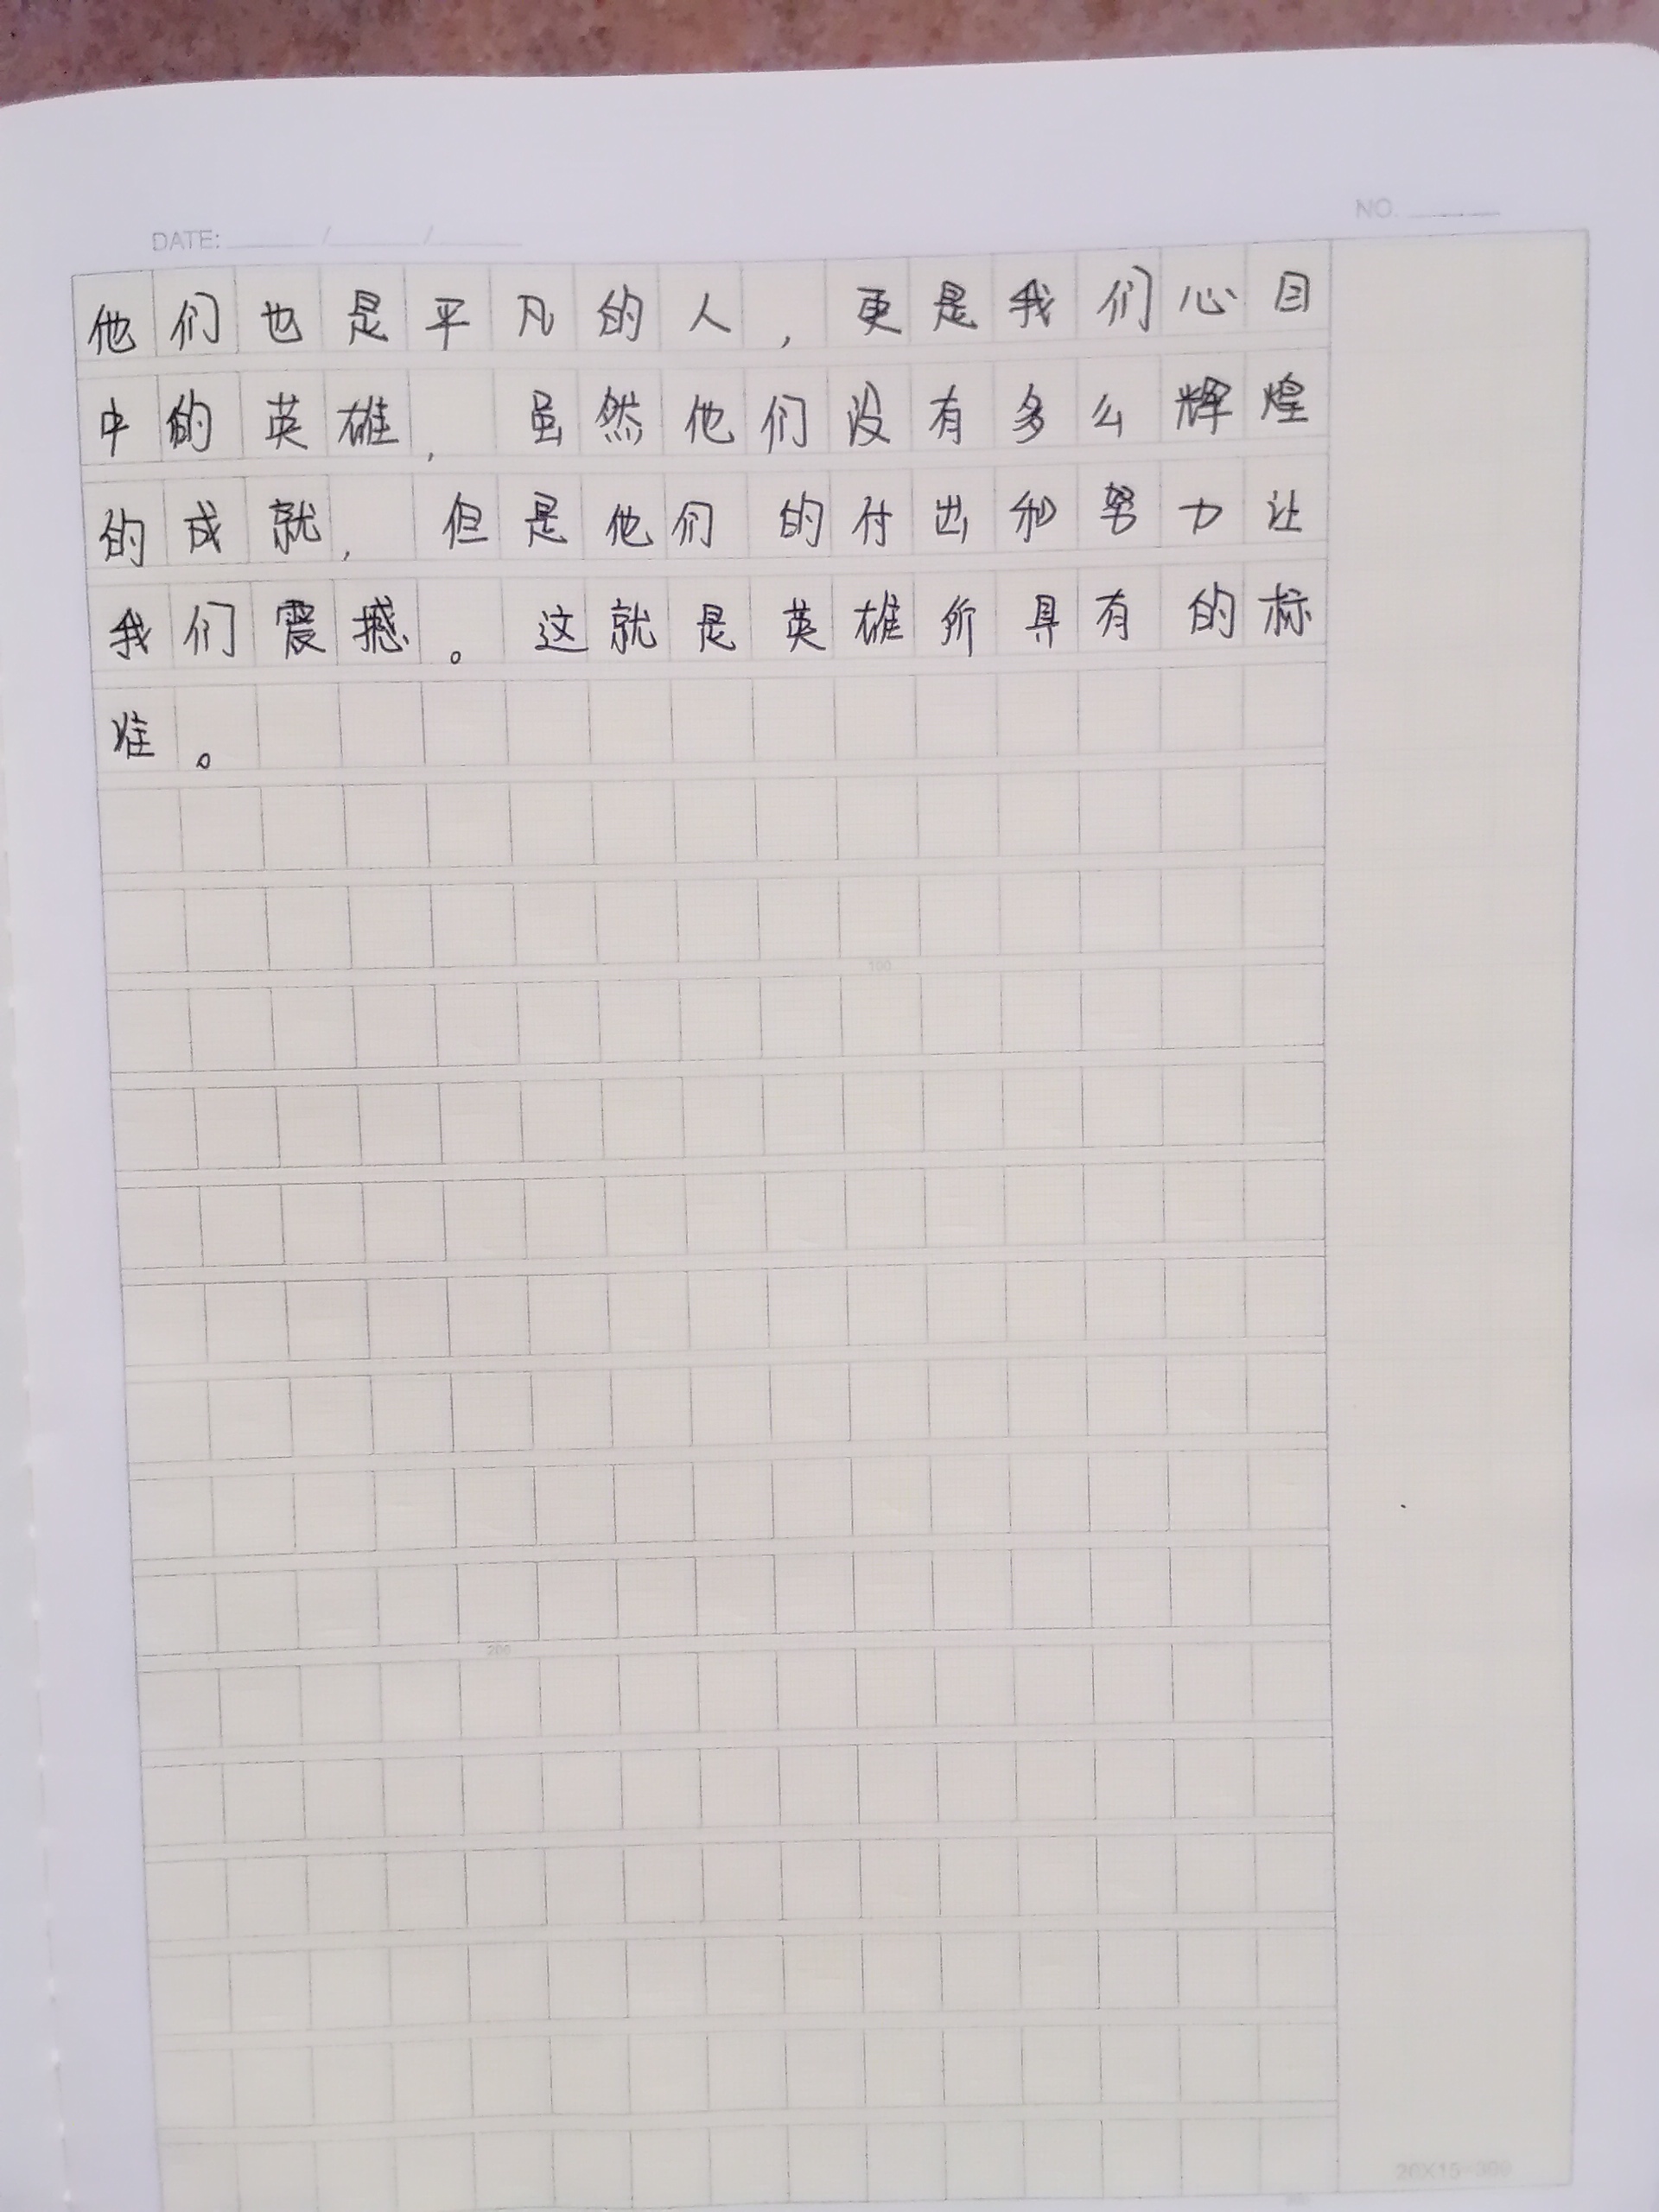 NO.
DATE: / /
他们也是平凡的人，更是我们心目
中的英雄，虽然他们没有多么辉煌
的成就，但是他们的付出和努力让
我们震撼。这就是英雄所具有的标
准。
100
200
20X15=300